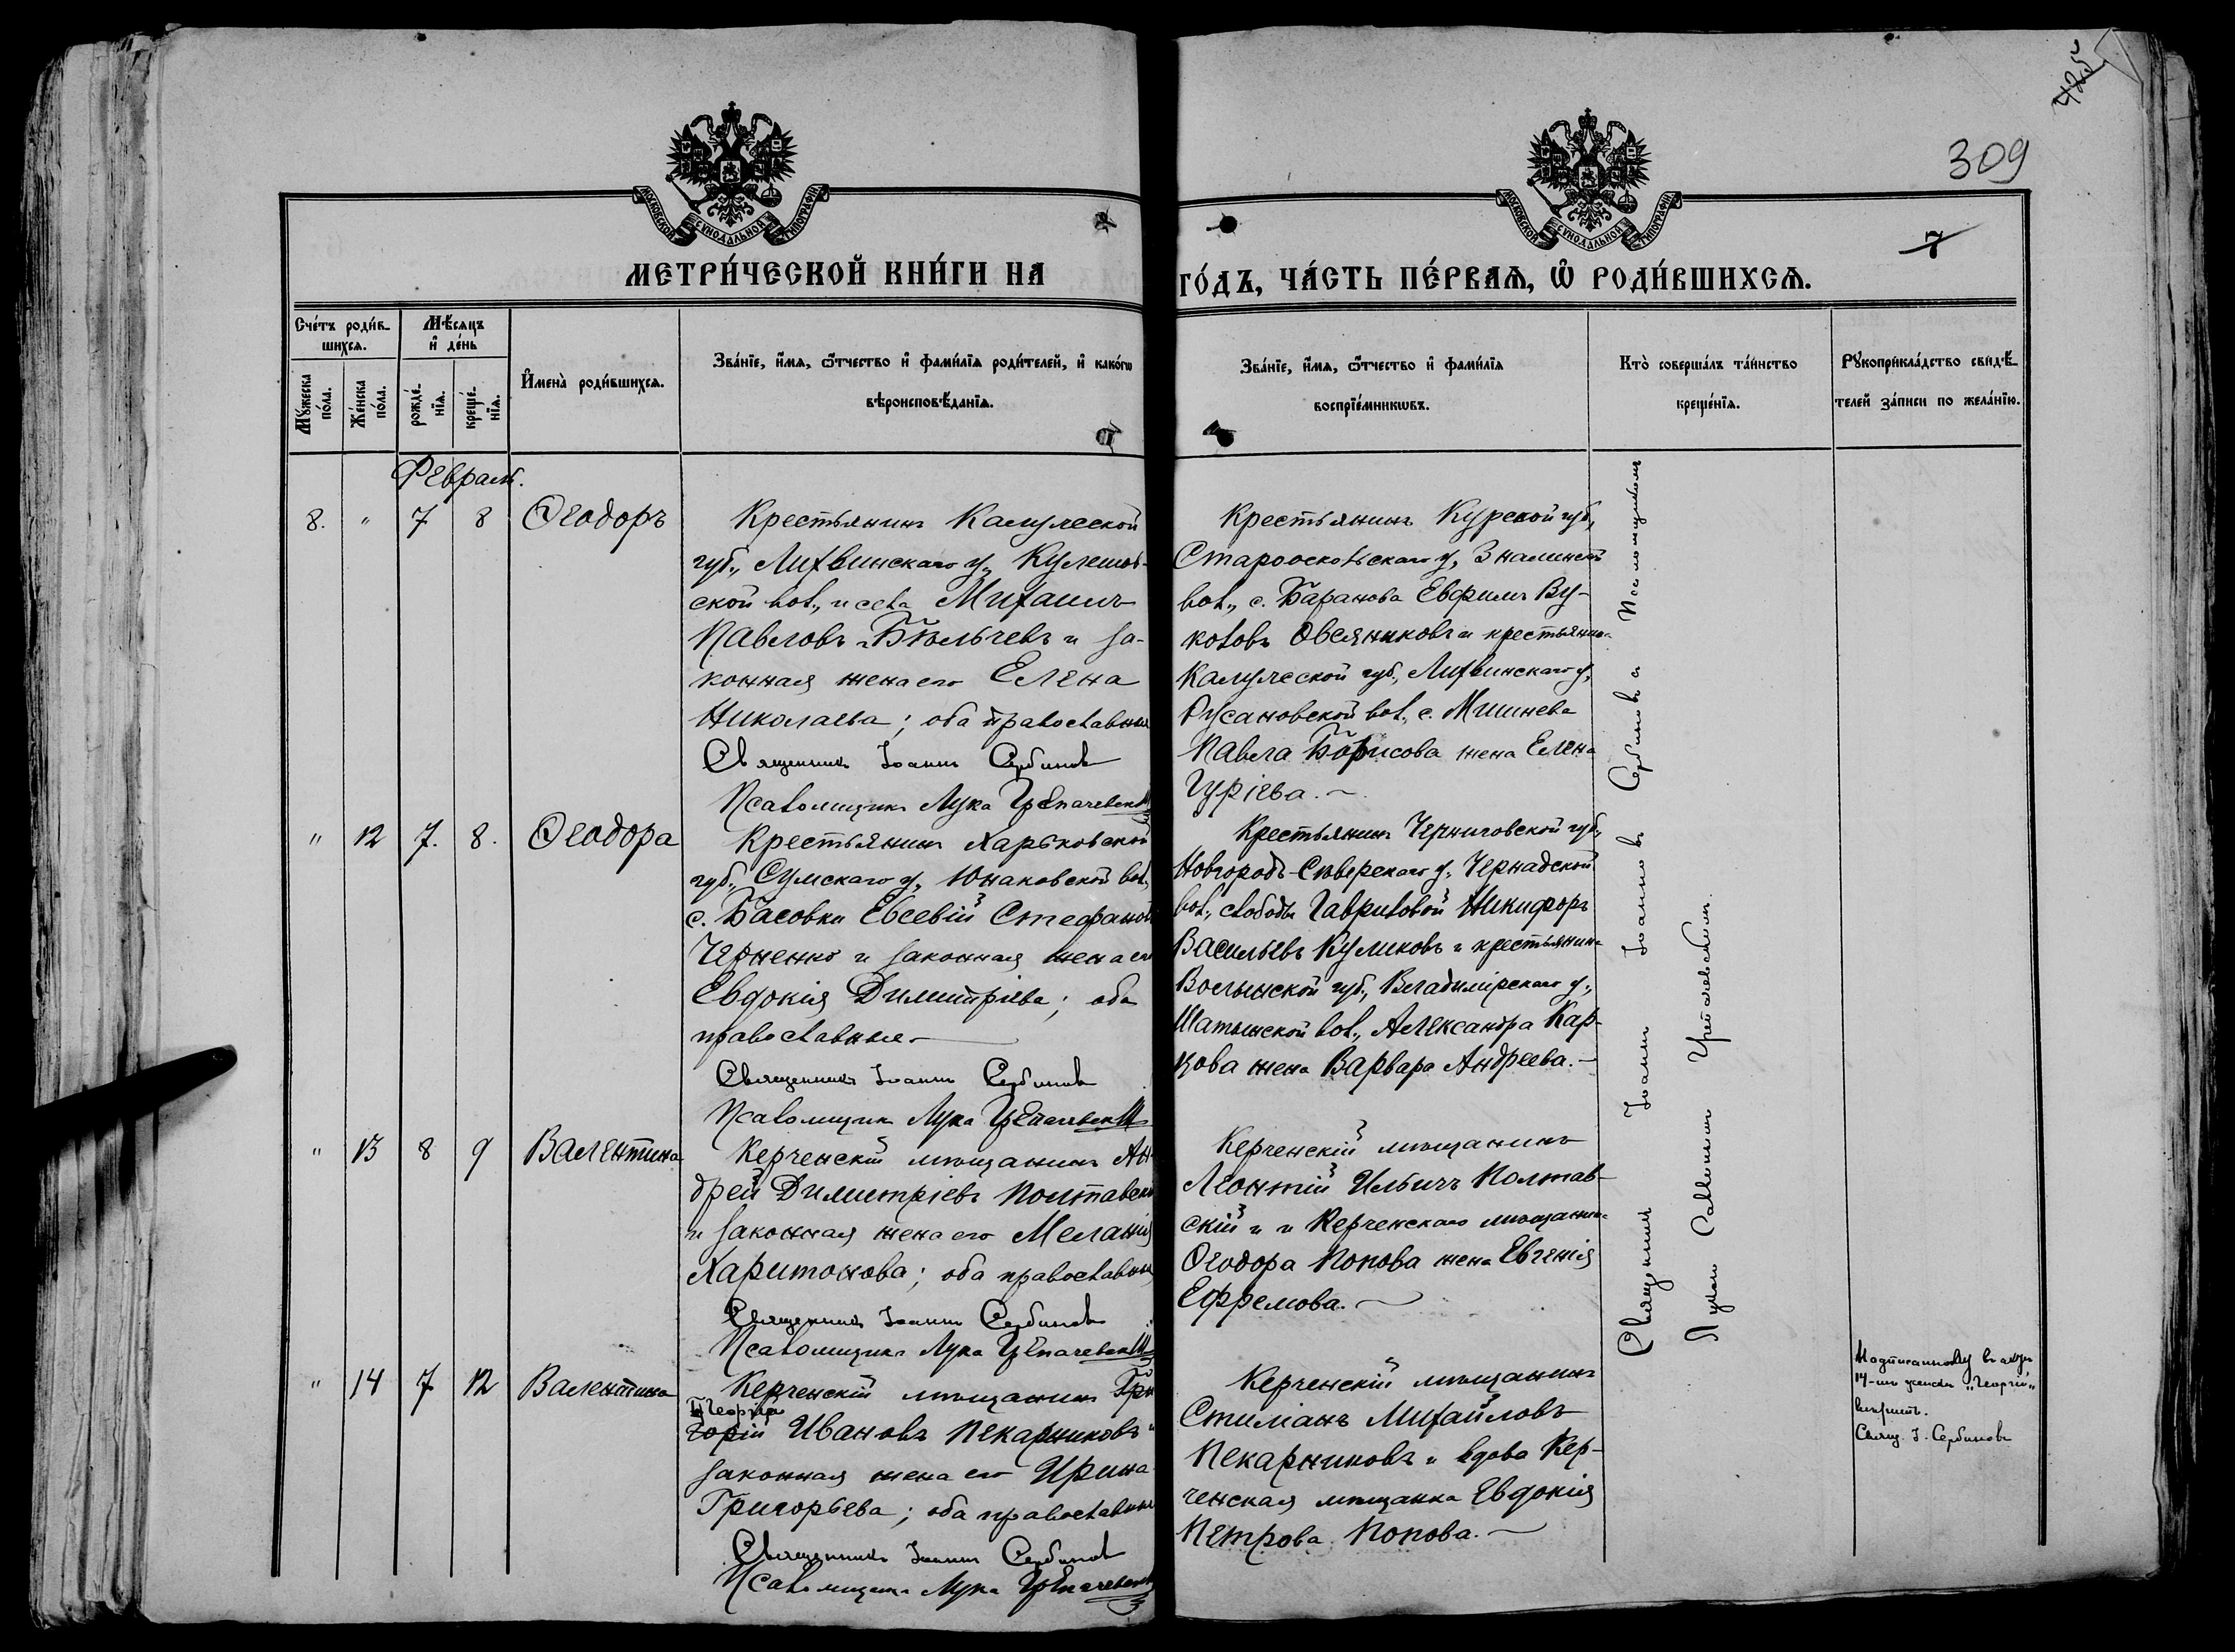 425
309
7
МОСКОВСКОЙ СѴНОДАЛЬНОЙ ТИПОГРАФІИ
МОСКОВСКОЙ СѴНОДАЛЬНОЙ ТИПОГРАФІИ
МЕТРИ́ЧЕСКОЙ КНИ́ГИ НА
ГО́ДЪ, ЧА́СТЬ ПЕ́РВАѦ, Ѡ҆ РОДИ́ВШИХСѦ.
Сче́тъ роди́в-
шихсѧ.
Мꙋ́жеска
по́ла.
Же́нска
по́ла.
Мѣ́сѧцъ
и҆ де́нь
рожде́-
нїѧ.
креще́-
нїѧ.
И҆мена̀ роди́вшихсѧ.
Зва́нїе, и҆́мѧ, ѻ҆́тчество и҆ фами́лїѧ роди́телей, и҆ како́гѡ
вѣроисповѣ́данїѧ.
Зва́нїе, и҆́мѧ, ѻ҆́тчество и҆ фами́лїѧ
воспрїе́мникѡвъ.
Кто̀ соверша́лъ та́инство
креще́нїѧ.
Рꙋкоприкла́дство свидѣ́-
телей за́писи по жела́нїю.
Февраль.
8. " 7 8 Ѳеодоръ
Крестьянинъ Калужской
губ., Лихвинскаго у., Кулешов-
ской вол., и села Михаилъ
Павловъ Бѣльчевъ и за-
конная жена его Елена
Николаева; оба православные
Священникъ Іоаннъ Сербиновъ
Псаломщикъ Лука
Крестьянинъ Курской губ.,
Старооскольскаго у., Знаменск
вол., с. Баранова Евфимъ Ву-
коловъ Овсяниковъ и крестьянина
Калужской губ., Лихвинскаго у.,
Русановской вол., с. Мишнева
Павла Борисова жена Елена
Гуріева.
" 12 7. 8. Ѳеодора
Крестьянинъ Харьковской
губ., Сумскаго у., Юнаковской вол.,
с. Басовки Евсевій Стефановъ
Черненко и законная жена его
Евдокія Димитріева; оба
православные
Священникъ Іоаннъ Сербиновъ
Псаломщикъ Лука
Крестьянинъ Черниговской губ.,
Новгородъ-Сѣверскаго у.,
вол., слободы Гавриловой Никифоръ
Васильевъ Куликовъ и крестьянина
Волынской губ., Владимірскаго у.,
вол., Александра Кар-
цова жена Варвара Андреева.
" 13 8 9 Валентина
Керченскій мѣщанинъ Ан-
дрей Димитріевъ Полтавскій
и законная жена его Меланія
Харитонова; оба православные
Священникъ Іоаннъ Сербиновъ
Псаломщикъ Лука
Керченскій мѣщанинъ
Леонтій Ильичъ Полтав-
скій и и Керченскаго мѣщанина
Ѳеодора Попова жена Евгенія
Ефремова.
" 14 7 12 Валентина
Керченскій мѣщанинъ Гри
Георгій
горій Ивановъ Пекарниковъ и
законная жена его Ирина
Григорьева; оба православные
Священникъ Іоаннъ Сербиновъ
Псаломщикъ Лука
Керченскій мѣщанинъ
Стиліанъ Михайловъ
Пекарниковъ и вдова Кер-
ченская мѣщанка Евдокія
Петрова Попова.
Священникъ Іоаннъ Іоанновъ Сербиновъ съ Псаломщикомъ
Лукою
Надписанному въ актѣ
14-мъ женск. "Георгій"
вѣрить.
Свящ. І. Сербиновъ